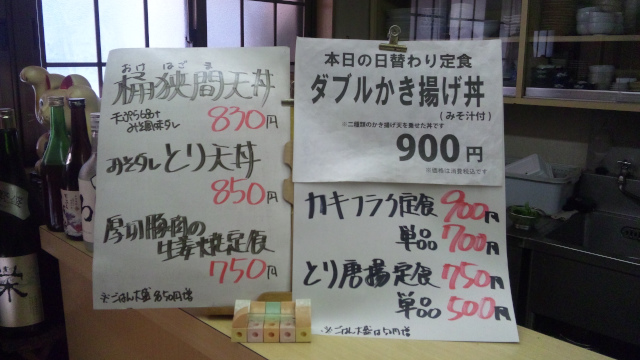 おけ はざま
桶狭間天丼
830円
みそダレ とり天丼
850円
厚切豚肉の
生姜焼定食
750円
※ごはん大盛 50円増
本日の日替わり定食
ダブルかき揚げ丼
(みそ汁付)
※二種類のかき揚げ天を乗せた丼です
900円
※価格は消費税込です
カキフライ定食 900円
単品 700円
とり唐揚定食 750円
単品 500円
※ごはん大盛は50円増